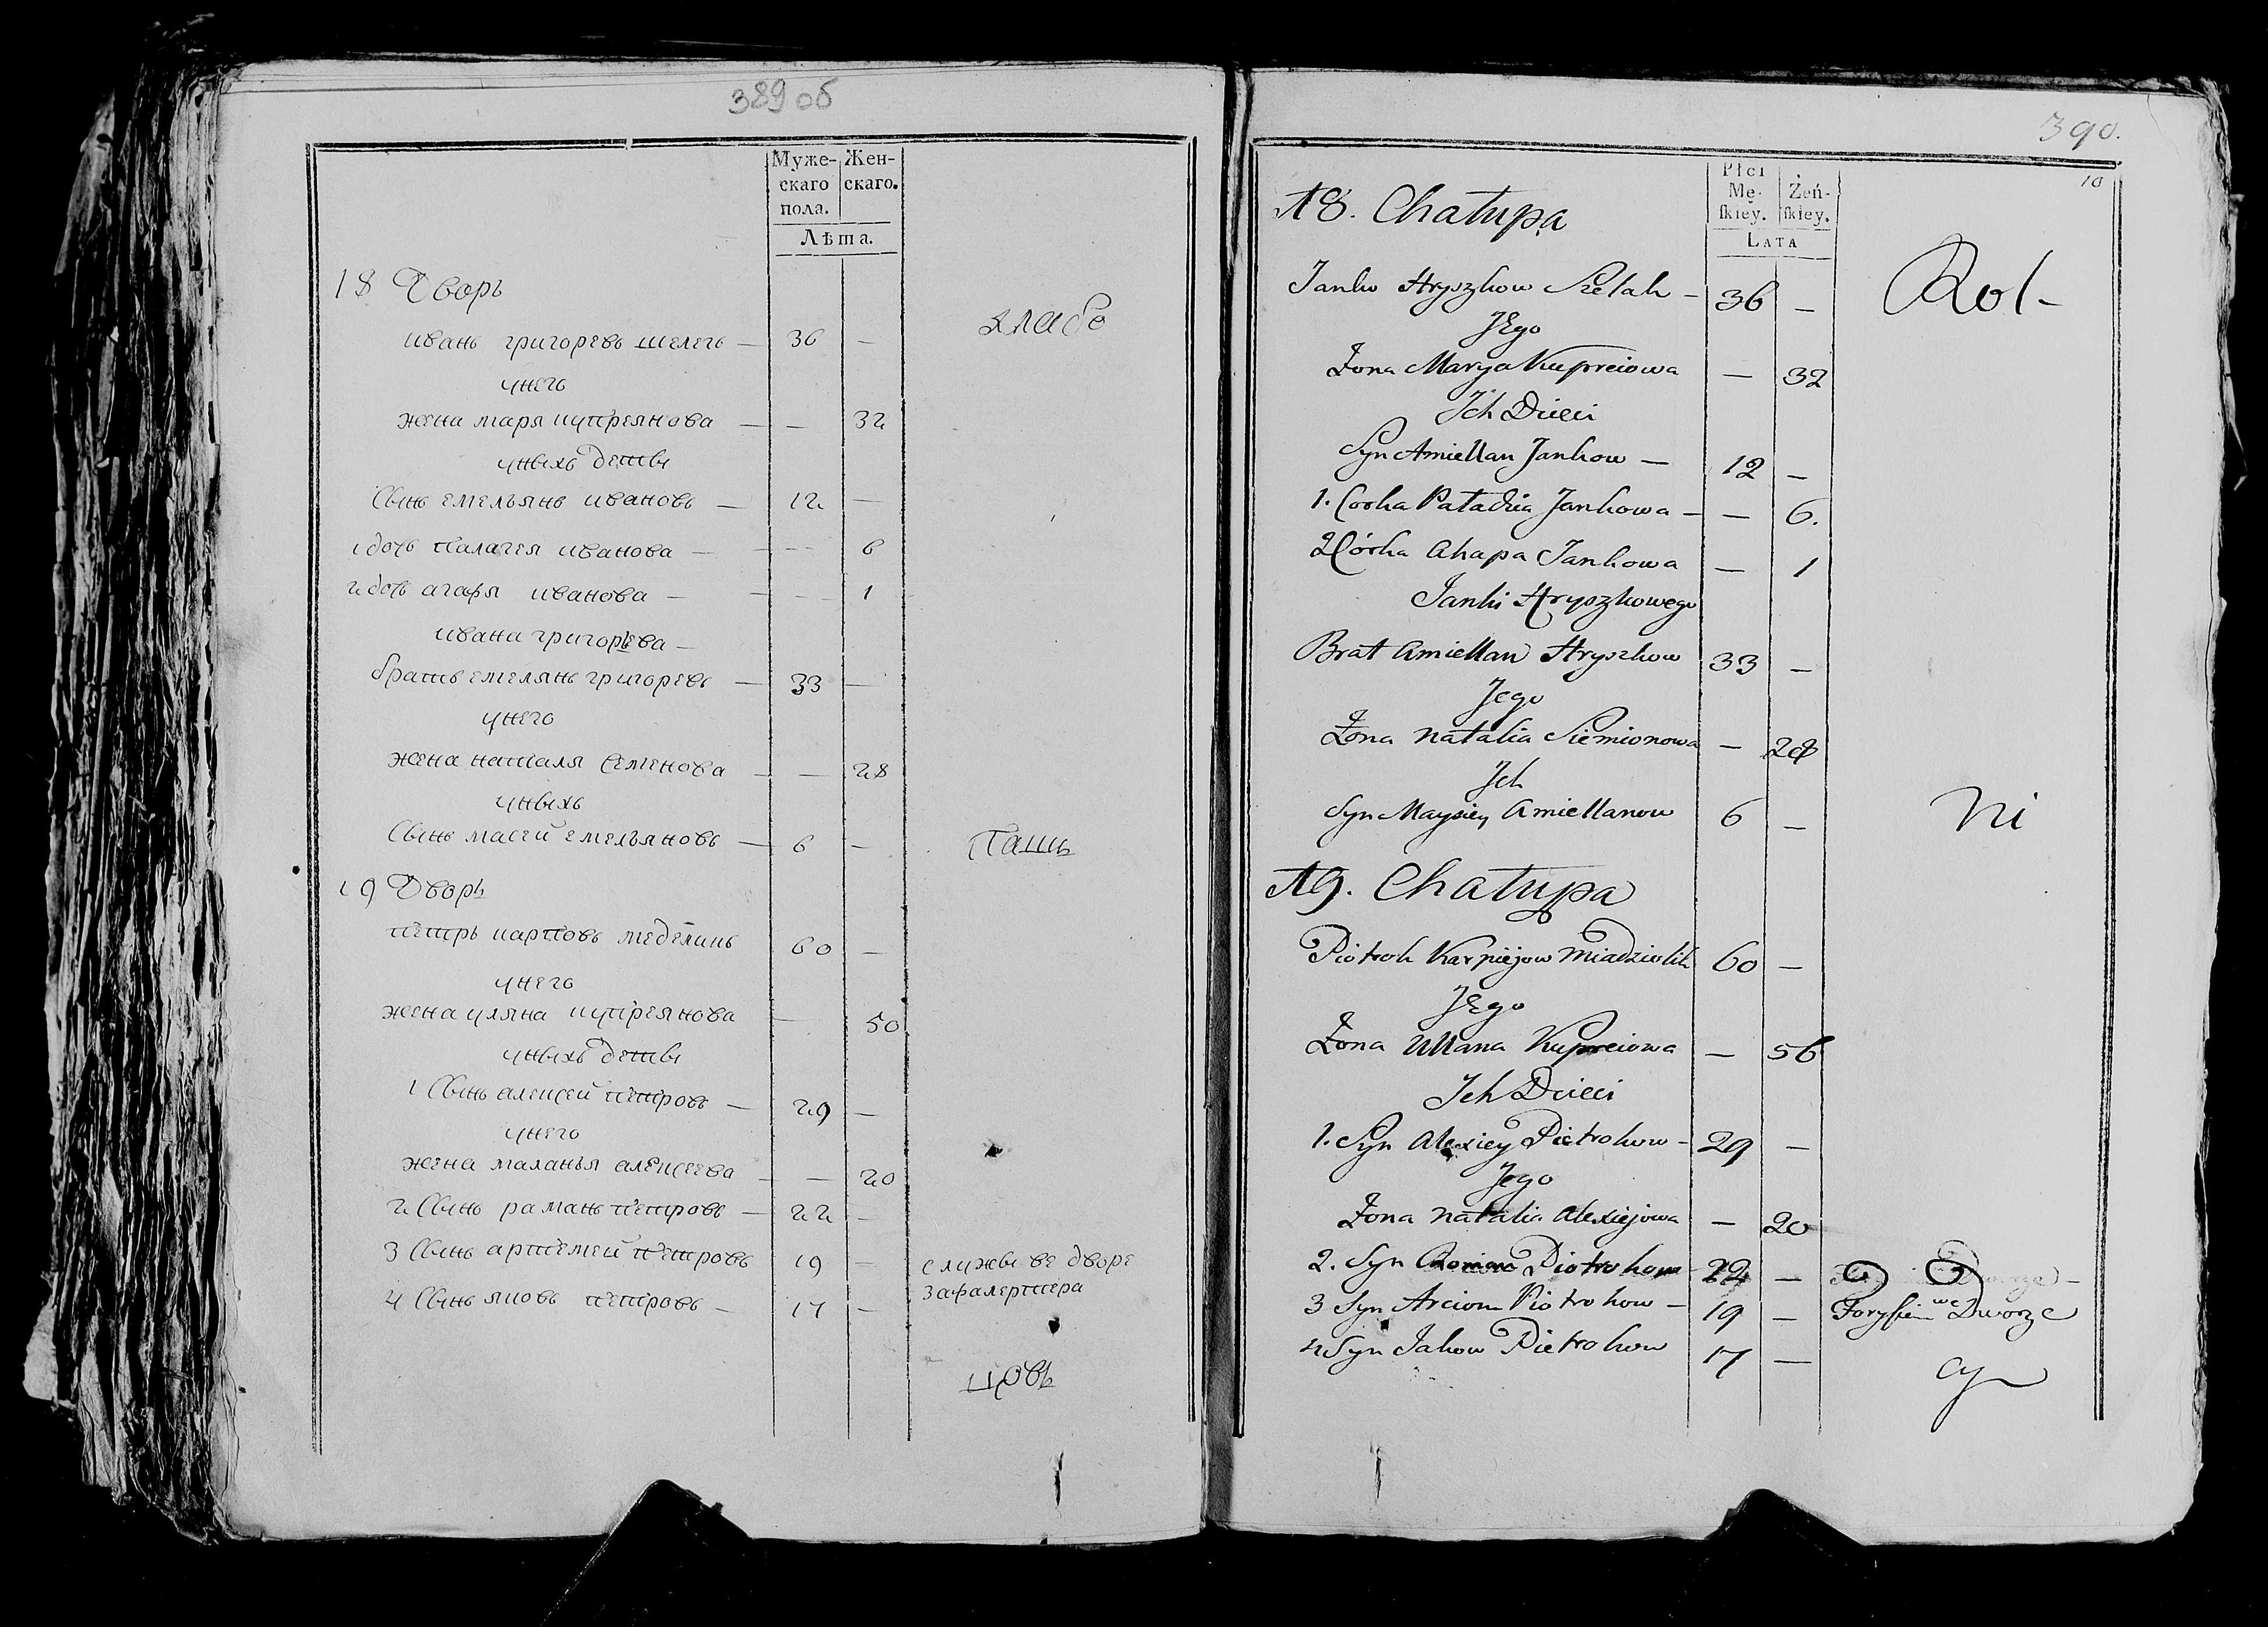 389 об
Муже- Жен-
скаго скаго.
пола.
Лѣта.
18 Дворъ
иванъ григоревъ шелегъ — 36 —
хлебо
унего
жена маря купреянова — — 32
уныхъ деты
Сынъ емельянъ ивановъ — 12 —
1 дочь палагея иванова — — 6
2 дочь агафя иванова — — 1
ивана григорева —
братъ емелянъ григоревъ — 33 —
унего
жена наталя семенова — — 28
уныхъ
Сынъ масей емельяновъ — 6 —
пашь
19 Дворъ
петръ карповъ меделикъ 60 —
унего
жена уляна купреянова — 50
уныхъ деты
1 Сынъ алексей петровъ — 29 —
унего
жена маланья алексеева — — 20
2 Сынъ раманъ петровъ — 22 —
3 Сынъ артемей петровъ 19 — служы ве дворе
зафалертера
4 Сынъ яковъ петровъ — 17 —
цовъ
390.
10
Płci
Mę- Żeń-
ſkiey. ſkiey.
LATA
18. Chałupa
Rol-
Janko Hryszkow Szelah — 36 —
JEgo
Żona Marya Kupreiowa — 32
Ich Dzieci
Syn Amiellan Jankow — 12 —
1. Corka Paładzia Jankowa — — 6.
2 Córka Ahapa Jankowa — 1
Janki Hryszkowego
Brat Amiellan Hryszkow 33 —
Jego
Żona Natalia Siemionowa — 28
Ich
Syn Maysiey Amiellanow 6 —
ni
19. Chałupa
Piotrok Karpiejow Miadziolik 60 —
JEgo
Żona Ullana Kupreiowa — 56
Ich Dzieci
1. Syn Alexiey Pietrokow — 29 —
Jego
Żona Natalia Alexiejowa — 20
2. Syn Roman Piotrokow 22 —
3 Syn Arciom Piotrokow — 19 — Foryśiem we Dworze
4 Syn Jakow Pietrokow 17 —
cy